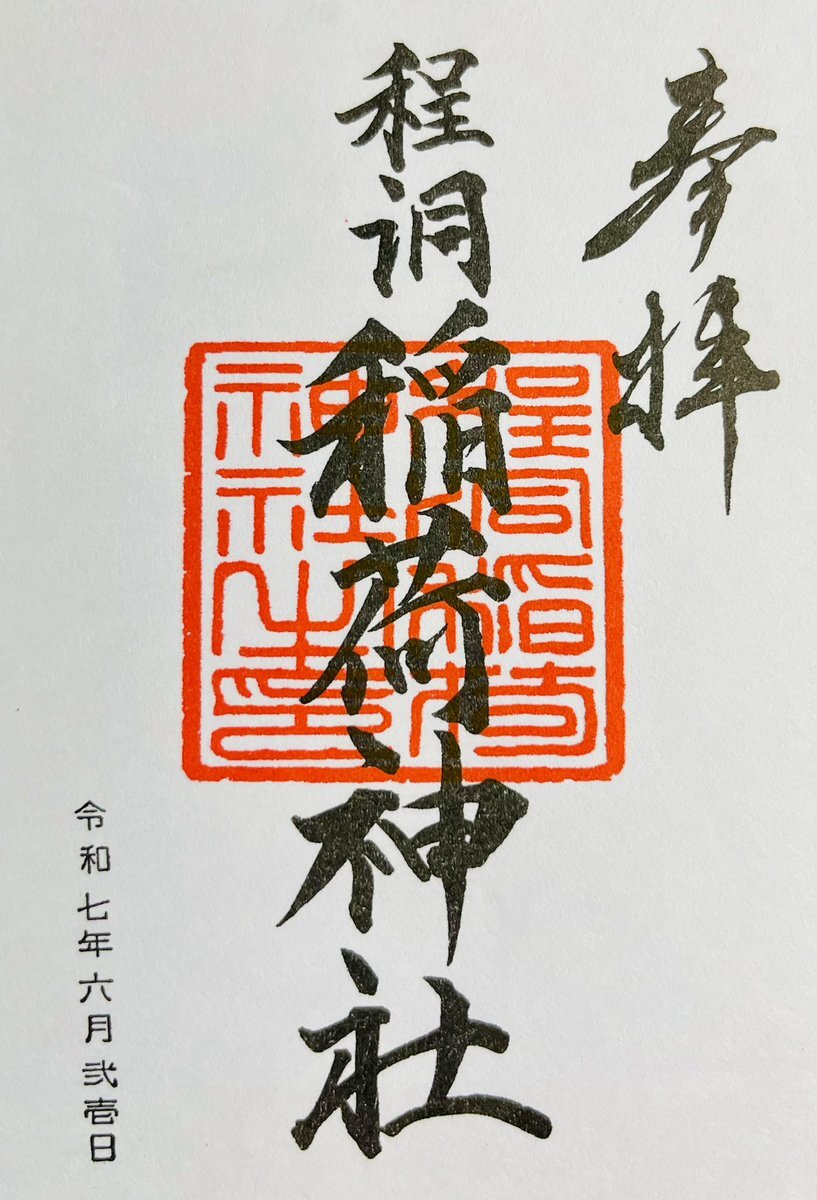 奉拝
程洞稲荷神社
程洞稲荷
神社之印
令和七年六月弐壱日